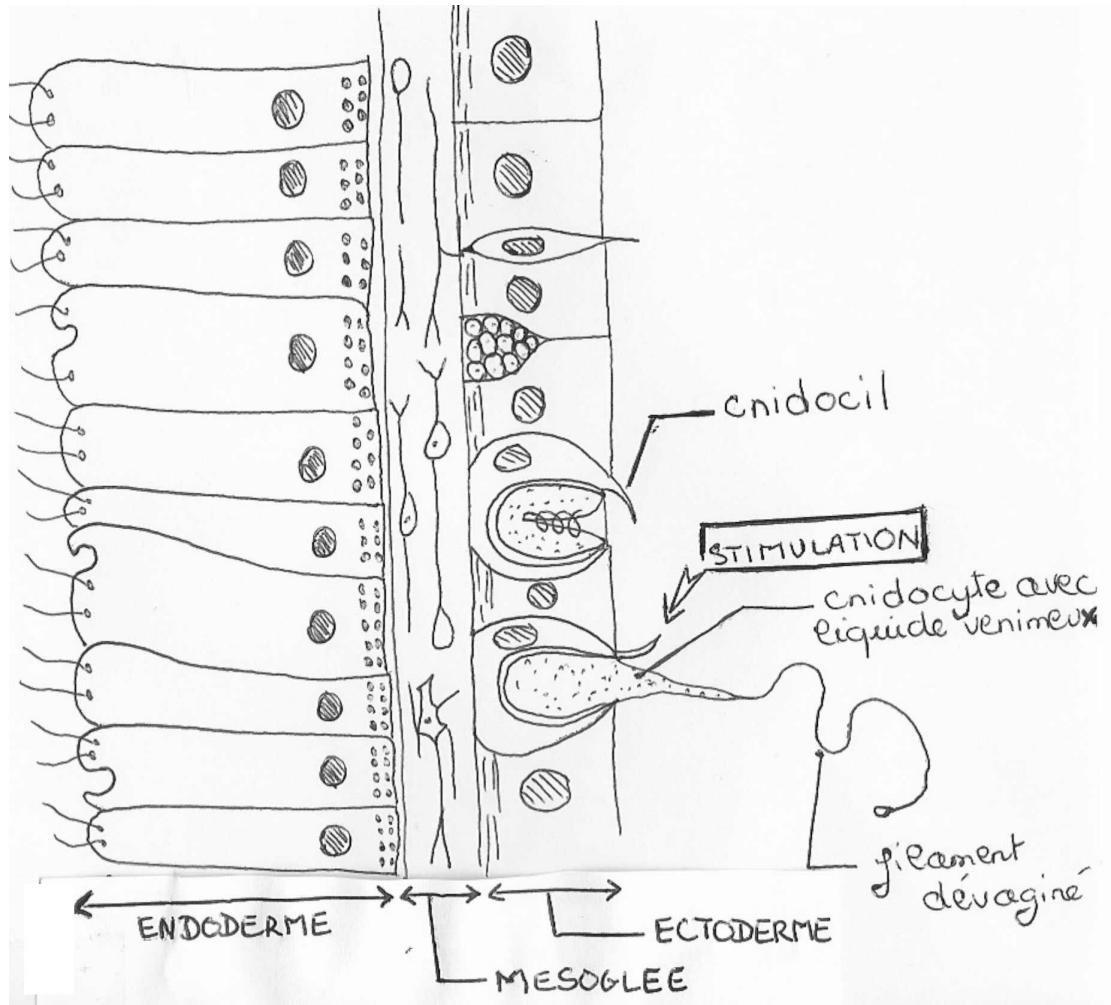 cnidocil
STIMULATION
cnidocyte avec
liquide venimeux
filament
dévaginé
ENDODERME
ECTODERME
MESOGLEE